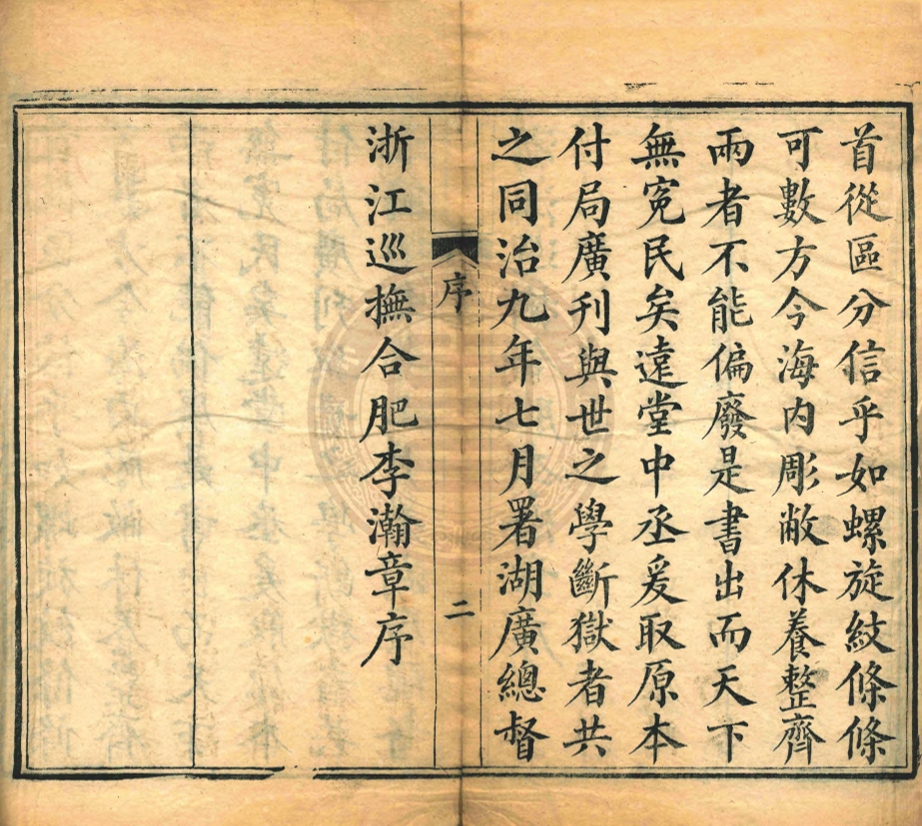 首從區分信乎如螺旋紋條條
可數方今海内彫敝休養整齊
兩者不能偏廢是書出而天下
無冤民矣遠堂中丞爰取原本
付局廣刊與世之學斷獄者共
之同治九年七月署湖廣總督
序 二
浙江巡撫合肥李瀚章序